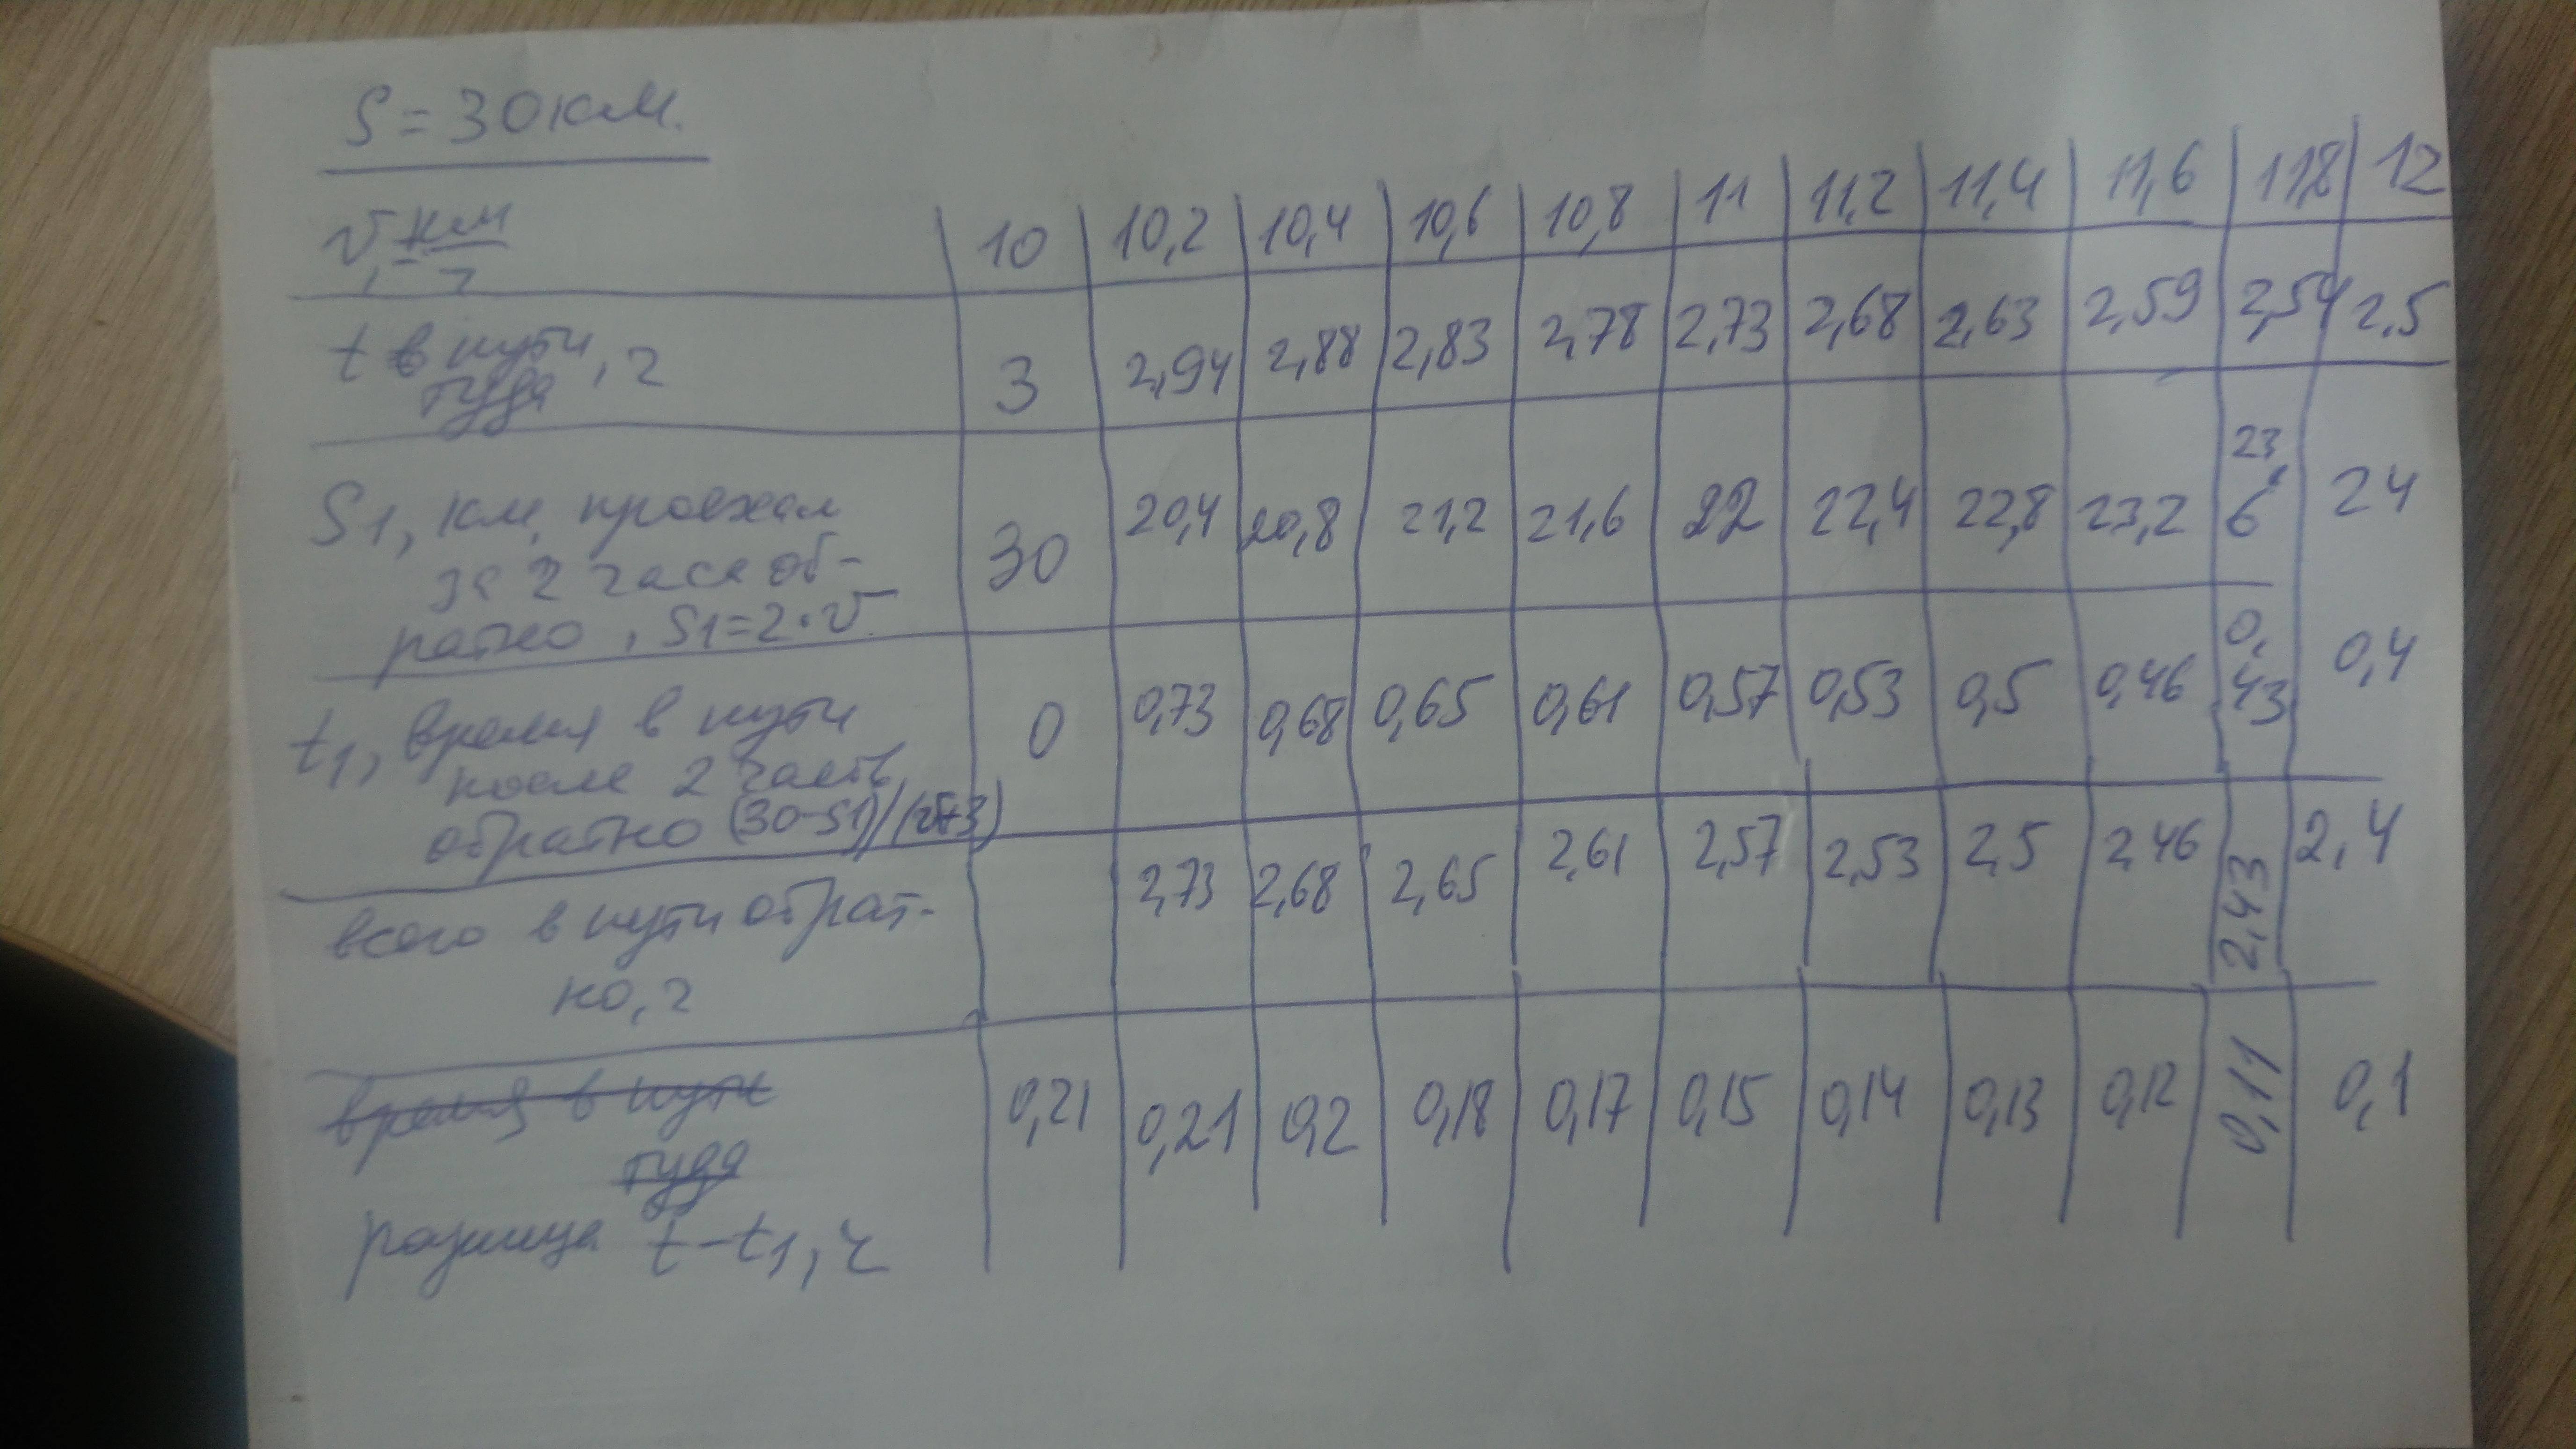 S = 30 км.
v, км/ч 10 10,2 10,4 10,6 10,8 11 11,2 11,4 11,6 11,8 12
t в пути, ч 3 2,94 2,88 2,83 2,78 2,73 2,68 2,63 2,59 2,54 2,5
туда
S1, км, проехал 30 20,4 20,8 21,2 21,6 22 22,4 22,8 23,2 23,6 24
за 2 часа об-
ратно, S1=2·v
t1, время в пути 0 0,73 0,68 0,65 0,61 0,57 0,53 0,5 0,46 0,43 0,4
после 2 часов
обратно (30-S1)/(v+3)
всего в пути обрат- 2,73 2,68 2,65 2,61 2,57 2,53 2,5 2,46 2,43 2,4
но, ч
время в пути 0,21 0,21 0,2 0,18 0,17 0,15 0,14 0,13 0,12 0,11 0,1
туда
разница t-t1, ч